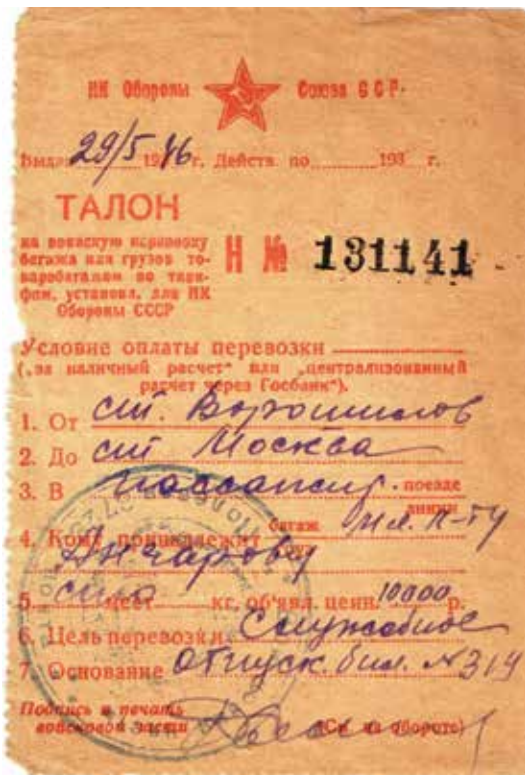 НК Обороны Союза ССР
Выдан 29/5 1946 г. Действ по 193 г.
ТАЛОН
на воинскую перевозку
багажа или грузов то-
варобагажом по тари-
фам, установл. для НК
Обороны СССР
Н № 131141
Условие оплаты перевозки
(„за наличный расчет" или „централизованный
расчет через Госбанк").
1. От ст. Ворошилов
2. До ст Москва
3. В пассажир. поезде
линии
4. Кому принадлежит багаж груз мл. л-ту
Анчарову
5. мест кг. об'явл. ценн. 10000 р.
6. Цель перевозки Служебное
7. Основание отпуск. бил. № 314
Подпись и печать
войсковой части (См. на обороте)